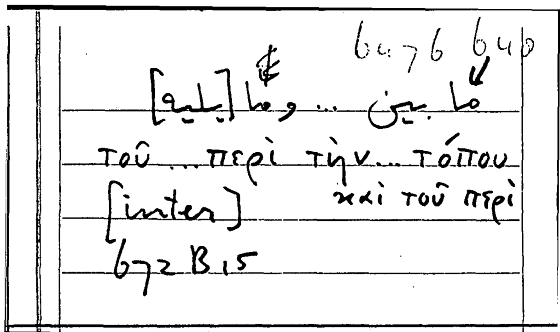 6476 640
ما بين ... وما [يليه]
τοῦ ... περὶ τὴν ... τόπου
καὶ τοῦ περὶ
[inter]
672 B 15